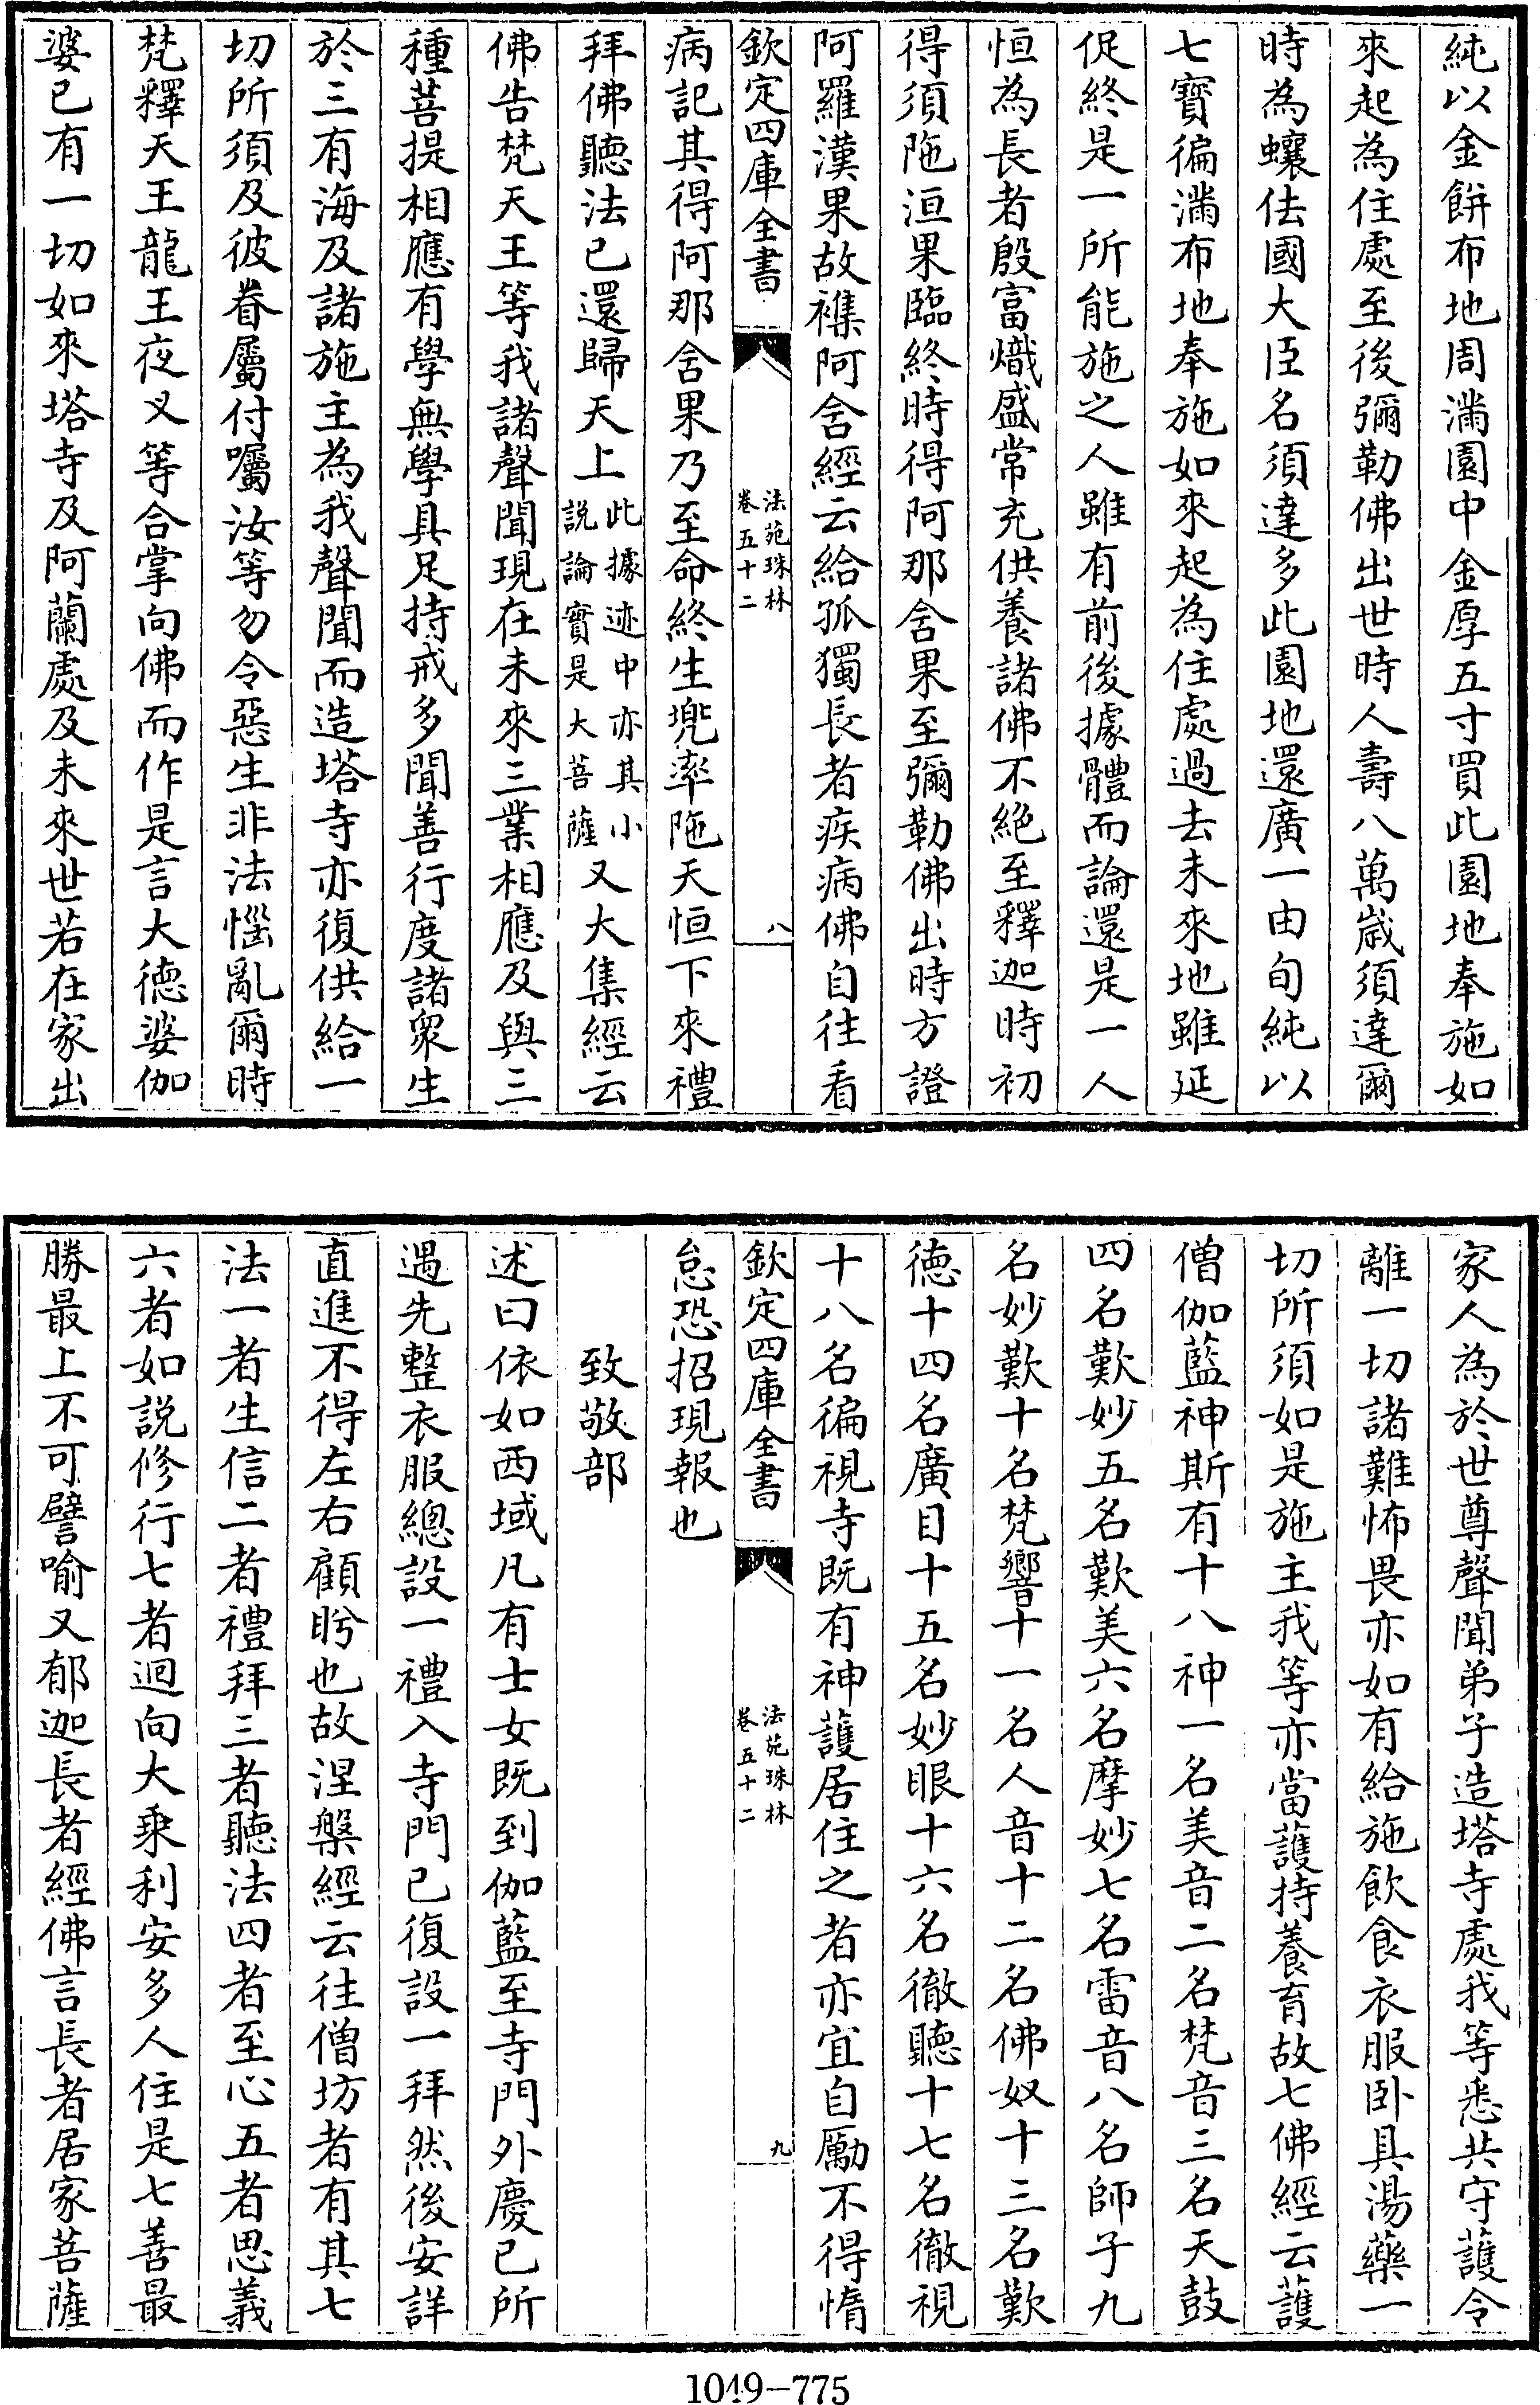 純以金餅布地周滿園中金厚五寸買此園地奉施如
來起為住處至後彌勒佛出世時人壽八萬歲須達爾
時為蠰佉國大臣名須達多此園地還廣一由旬純以
七寶徧滿布地奉施如來起為住處過去未來地雖延
促終是一所能施之人雖有前後據體而論還是一人
恒為長者殷富熾盛常充供養諸佛不絕至釋迦時初
得須陁洹果臨終時得阿那含果至彌勒佛出時方證
阿羅漢果故襍阿含經云給孤獨長者疾病佛自往看
欽定四庫全書
法苑珠林
卷五十二
八
病記其得阿那含果乃至命終生兠率陁天恒下來禮
拜佛聽法已還歸天上此據迹中亦其小說論實是大菩薩又大集經云
佛告梵天王等我諸聲聞現在未來三業相應及與三
種菩提相應有學無學具足持戒多聞善行度諸衆生
於三有海及諸施主為我聲聞而造塔寺亦復供給一
切所須及彼眷屬付囑汝等勿令惡生非法惱亂爾時
梵釋天王龍王夜叉等合掌向佛而作是言大德婆伽
婆已有一切如來塔寺及阿蘭處及未來世若在家出
家人為於世尊聲聞弟子造塔寺處我等悉共守護令
離一切諸難怖畏亦如有給施飲食衣服卧具湯藥一
切所須如是施主我等亦當護持養育故七佛經云護
僧伽藍神斯有十八神一名美音二名梵音三名天鼓
四名歎妙五名歎美六名摩妙七名雷音八名師子九
名妙歎十名梵響十一名人音十二名佛奴十三名歎
德十四名廣目十五名妙眼十六名徹聽十七名徹視
十八名徧視寺既有神護居住之者亦宜自勵不得惰
欽定四庫全書
法苑珠林
卷五十二
九
怠恐招現報也
致敬部
述曰依如西域凡有士女既到伽藍至寺門外慶已所
遇先整衣服總設一禮入寺門已復設一拜然後安詳
直進不得左右顧眄也故涅槃經云往僧坊者有其七
法一者生信二者禮拜三者聽法四者至心五者思義
六者如說修行七者迴向大乘利安多人住是七善最
勝最上不可譬喻又郁迦長者經佛言長者居家菩薩
1049-775